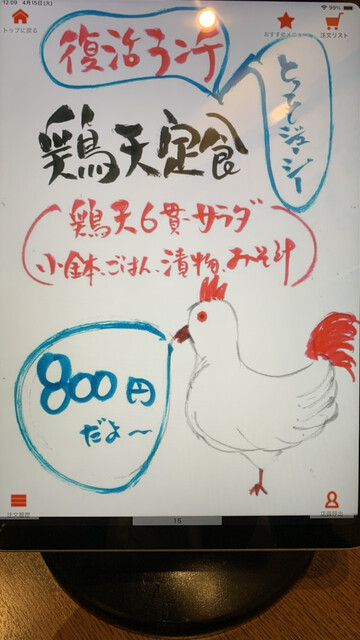 12:09 4月16日(火)
99%
トップに戻る
おすすめメニュー
注文リスト
復活ランチ
とってもジューシー
鶏天定食
鶏天6貫、サラダ
小鉢、ごはん、漬物、おみそ汁
800円
だよ〜
注文履歴
店員呼出
15